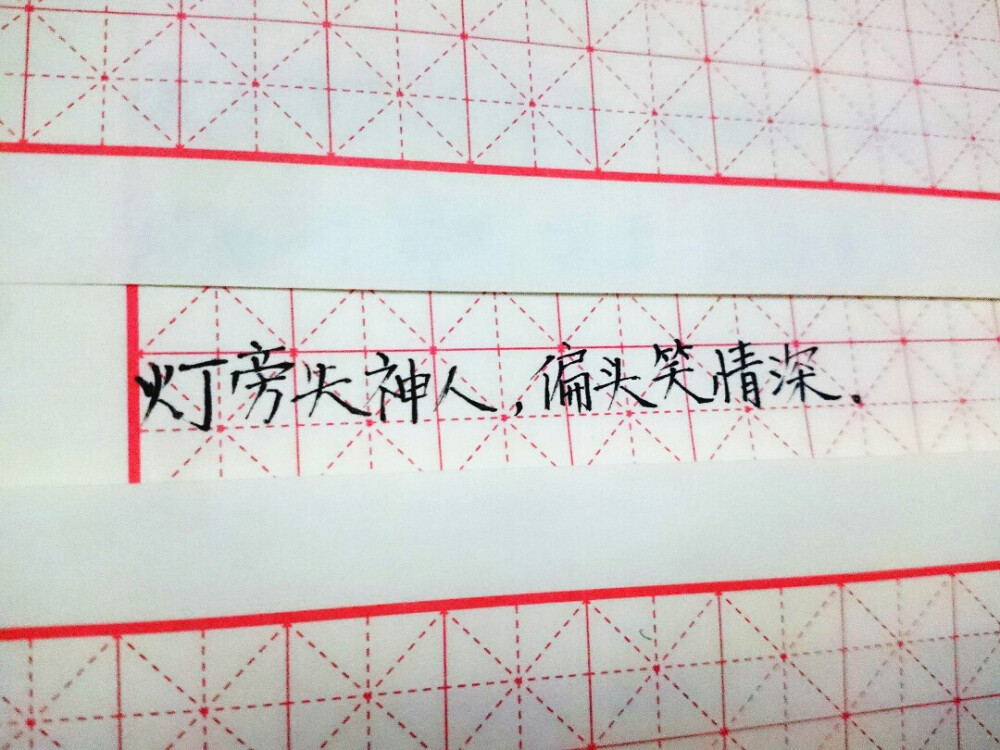 灯旁失神人,偏头笑情深.